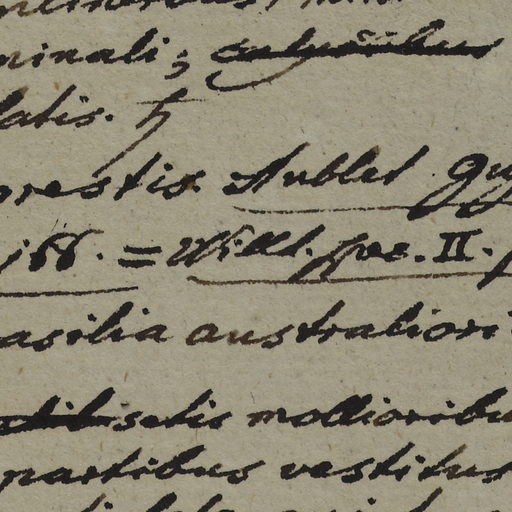 minali; calycibus
latis. ♄
prestis. Aublet. Gu
166. = Willd. spec. II.
asilia australiori
setis mollioribu
partibus vestitus